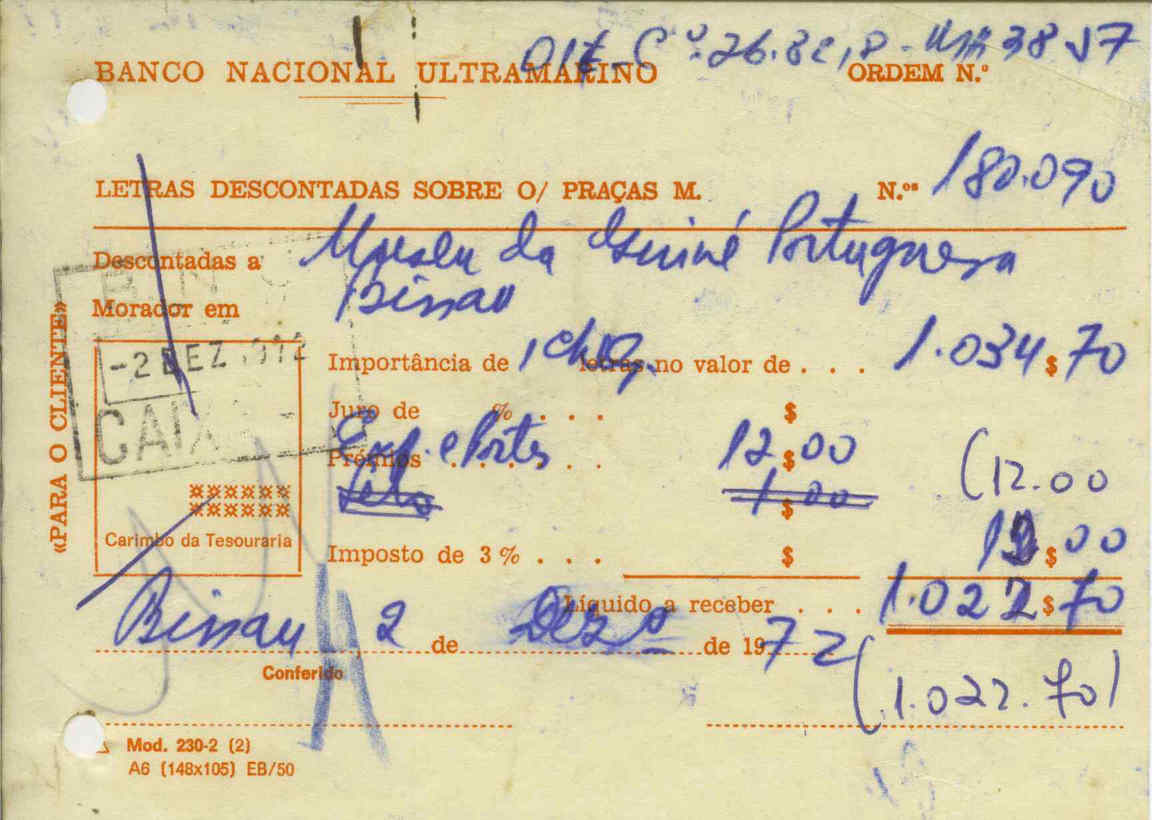 BANCO NACIONAL ULTRAMARINO ORDEM N.º
LETRAS DESCONTADAS SOBRE O/ PRAÇAS M. N.ºs 180.090
Descontadas a Museu da Guiné Portuguesa
Morador em Bissau
«PARA O CLIENTE»
B N
-2 DEZ 1972
CAIXA
Carimbo da Tesouraria
Importância de 1 cheq. letras no valor de . . . 1.034$70
Juro de % . . . $
Prémios . . . . . . . Exp. e Portes 12$00 (12.00
Selo 1$00
12$00
Imposto de 3% . . . $
Líquido a receber . . . 1.022$70
Bissau 2 de Dezº de 1972
(1.022.70)
Conferido
Mod. 230-2 (2)
A6 (148x105) EB/50